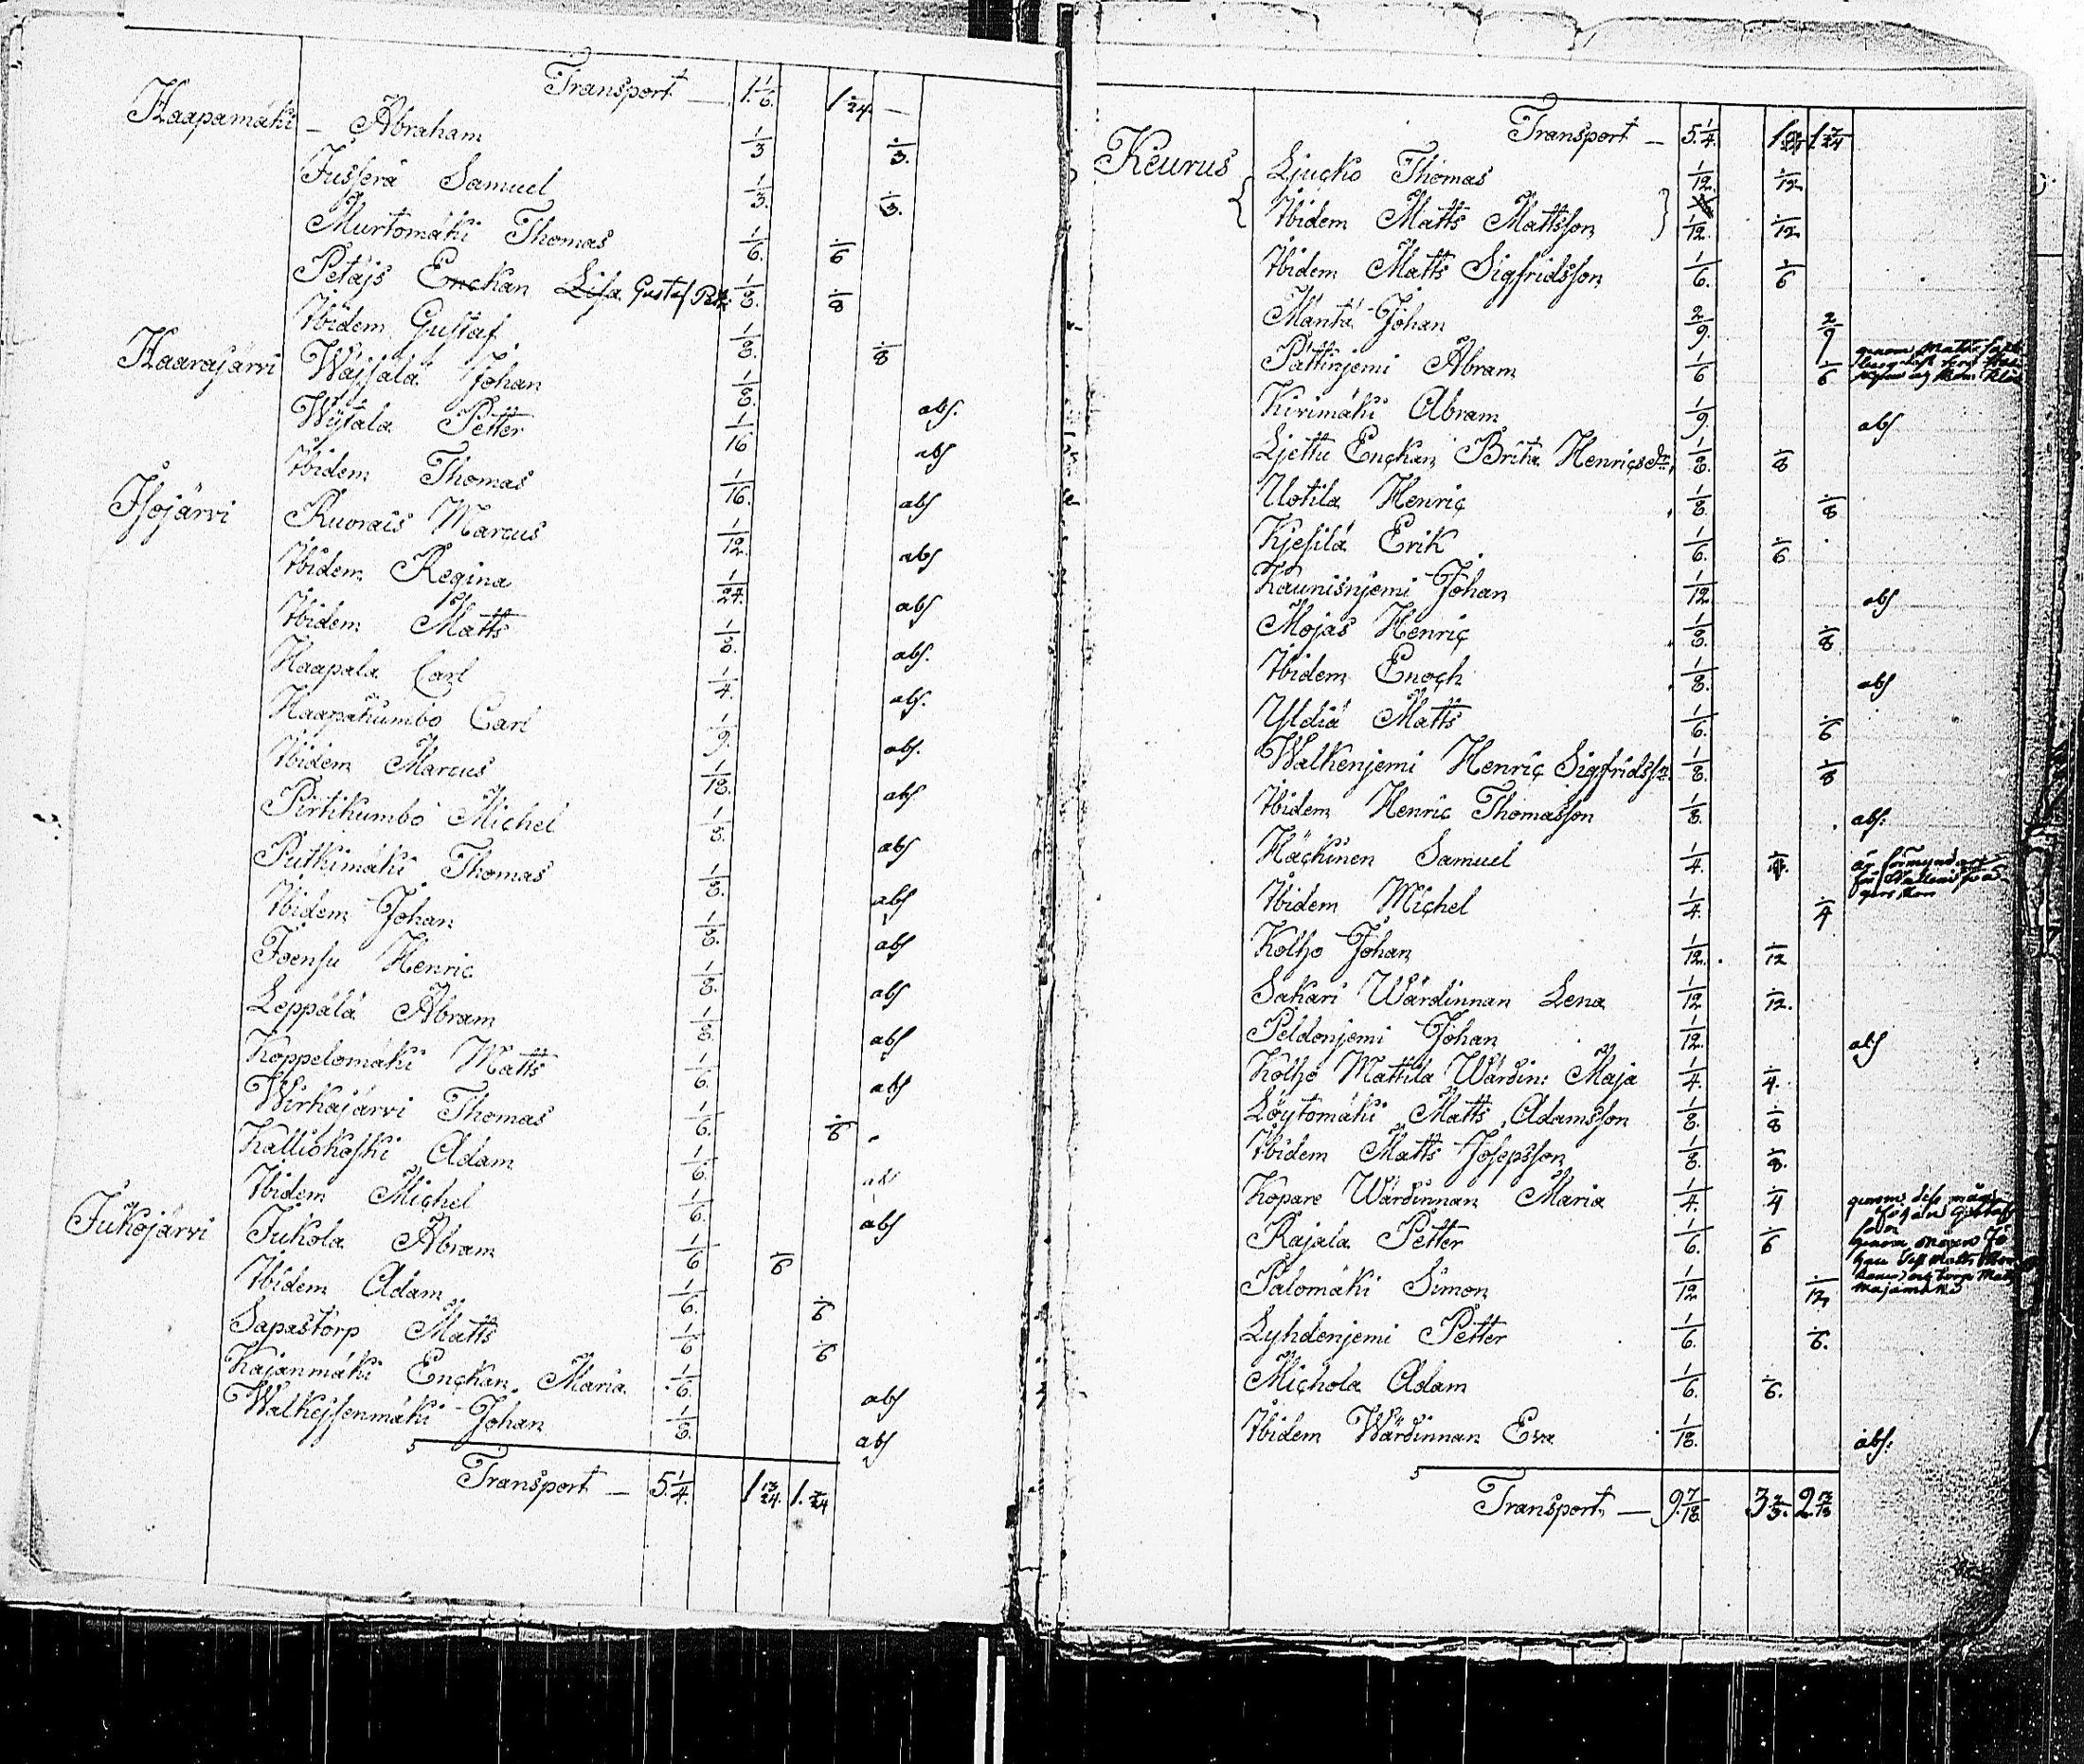 Transport — 1 1/6. 1 1/24. —
Haapamäki — Abraham 1/3 1/3.
Jusserä Samuel 1/3. 1/3.
Murtomäki Thomas 1/6. 1/6
Petäjs Enckan Lisa Gustaf 1/8. 1/8
Ibidem Gustaf 1/8. 1/8
Haarajärvi Wäjsälä Johan 1/8. abs.
Petter 1/16 abs
Ibidem Thomas 1/16. abs
Isojärvi Ruorais Marcus 1/12. abs
Ibidem Regina 1/24. abs
Ibidem Matts 1/8. abs.
Haapala Carl 1/4. abs.
Haapakumbo Carl 1/9. abs.
Ibidem Marcus 1/18. abs
Pirtikumbo Michel 1/8. abs
Putkimäki Thomas 1/8. abs
Ibidem Johan 1/8. abs
Joensu Henric 1/8. abs
Leppälä Abram 1/8. abs
Koppelomäki Matts 1/6. abs
Wirkajärvi Thomas 1/6. 1/6
Kalliokoski Adam 1/6. abs
Ibidem Michel 1/6. abs
Jukojärvi Jukola Abram 1/6 1/6
Ibidem Adam 1/6. 1/6
Sapastorp Matts 1/6 1/6
Kajanmäki Enckan Maria 1/6. abs
Walkejsenmäki Johan 1/8. abs
Transport — 5 1/4. 1 13/24. 1.
Transport — 5 1/4. 1
Keurus Ljucko Thomas 1/12. 1/12
Ibidem Matts Mattsson 1/12. 1/12
Ibidem Matts Sigfridsson 1/6. 1/6
Mäntä Johan 2/9. 2/9
Pättinjemi Abram 1/6 1/6
genom
Kirimäki Abram 1/9. abs
Ljettu Enckan Brita Henricsdr. 1/8. 1/8
Uotila Henric 1/8. 1/8
Kjesilä Erik 1/6. 1/6
Kaunisnjemi Johan 1/12. abs
Mojas Henric 1/8. 1/8
Ibidem Enoch 1/8. abs
Yldiä Matts 1/6. 1/6
Walkenjemi Henric Sigfridss. 1/8. 1/8
Ibidem Henric Thomasson 1/8. abs:
Häckinen Samuel 1/4. 1/4. är förmyndare
för
Ibidem Michel 1/4. 1/4
Kolho Johan 1/12. 1/12
Sakari Wärdinnan Lena 1/12 1/12.
Peldonjemi Johan 1/12. abs
Kolho Mattila Wärdin: Maja 1/4. 1/4.
Löytomäki Matts Adamsson 1/8. 1/8
Ibidem Matts Josepsson 1/8. 1/8.
Kopare Wärdinnan Maria 1/4. 1/4 genom dess måg
Johan Gustafs
son
Rajala Petter 1/6. 1/6 genom
Palomäki Simon 1/12 1/12
Lyhdenjemi Petter 1/6. 1/6.
Michola Adam 1/6. 1/6.
Ibidem Wärdinnan Eva 1/18. abs:
Transport — 9 7/18. 3 2/3. 2